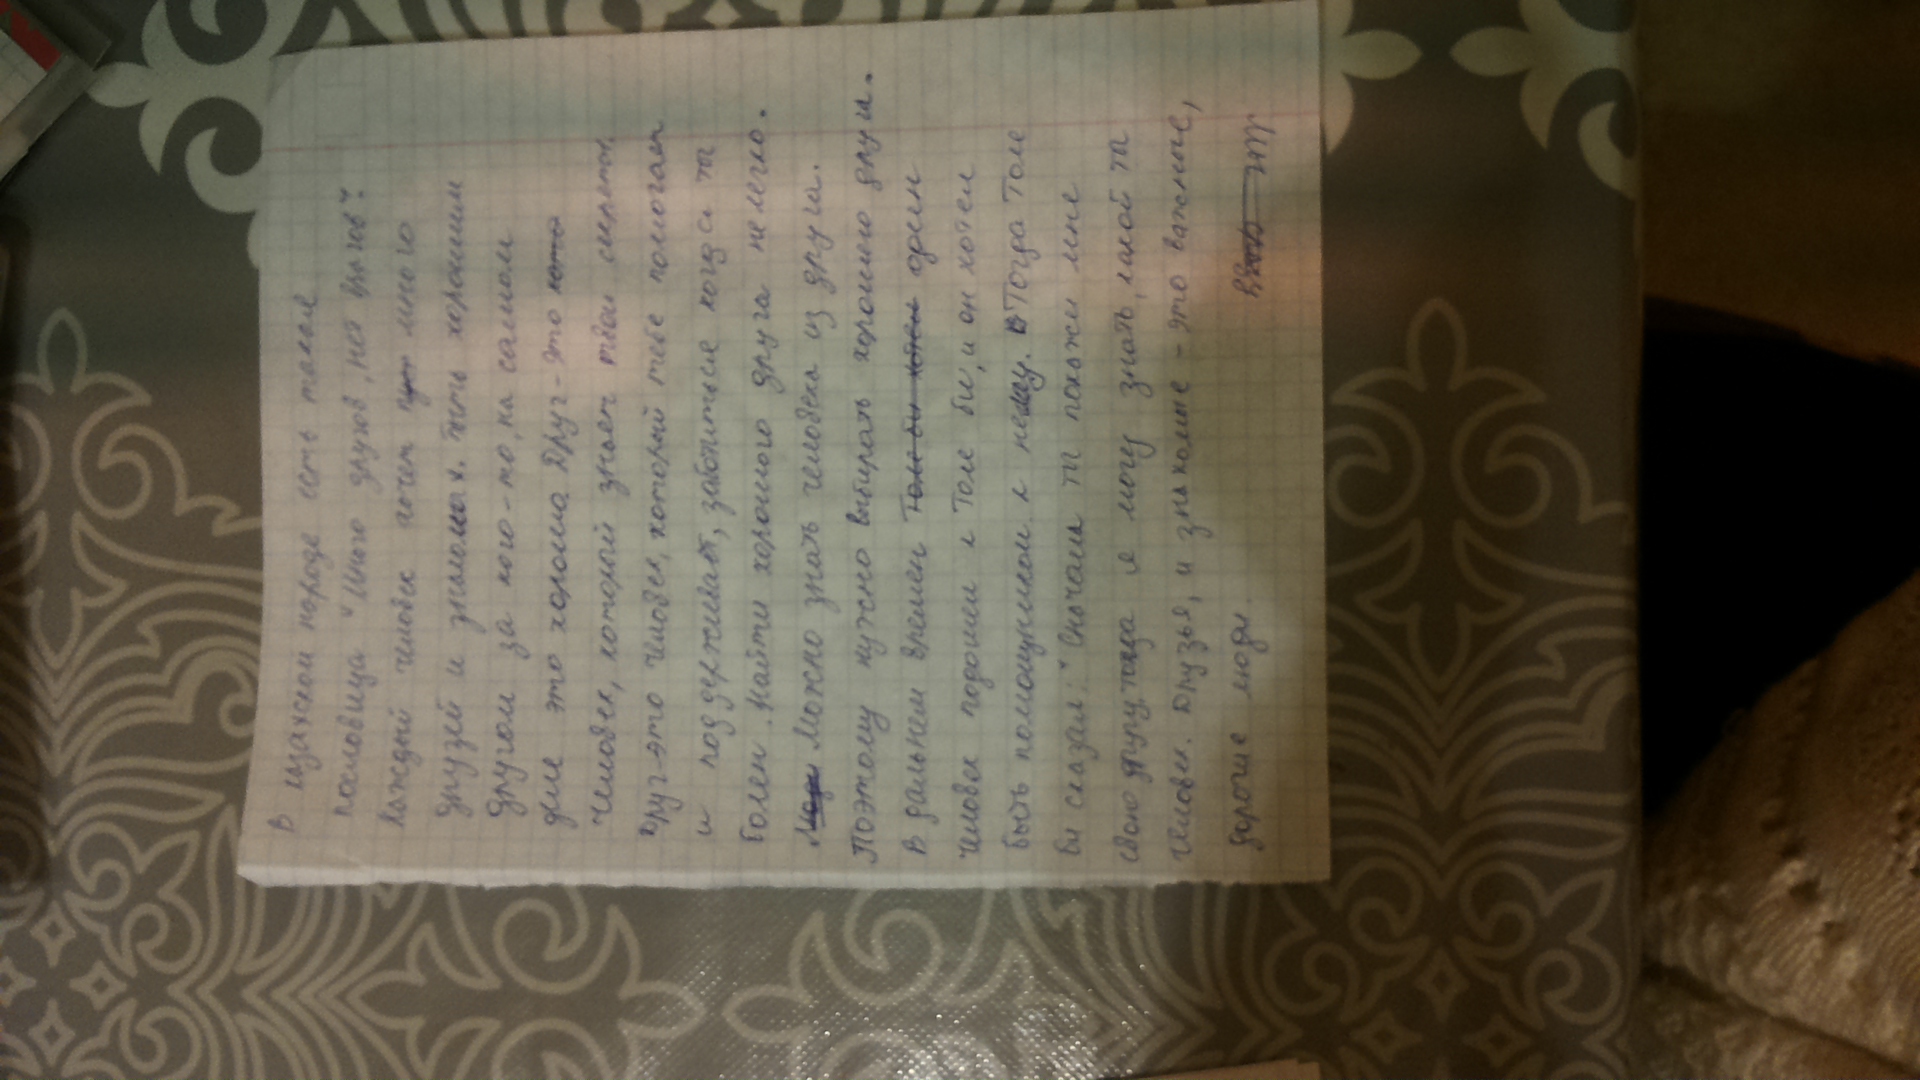 В казахском народе есть такая
пословица "Много друзов, нет врагов".
Каждый человек хочет много
друзей и знакомых. Быть хорошим
другом за кого-то, на самом
деле это хорошо. Друг - это
человек, который знает твои секреты,
друг-это человек, который тебе помогает
и поддерживает, заботиться когда ты
болен. Найти хорошого друга не легко.
Можно знать человека из друга.
Поэтому нужно выбирать хорошего друга.
В дальнем времен Толе би хотел один
человек подошел к Толе би, и он хотел
быть помощником к нему. Тогда Толе
би сказал: "Сначала ты покажи мне
свою друг, тогда я могу знать, какой ты
человек. Друзья, и знакомые - это важные,
дорогие люди.